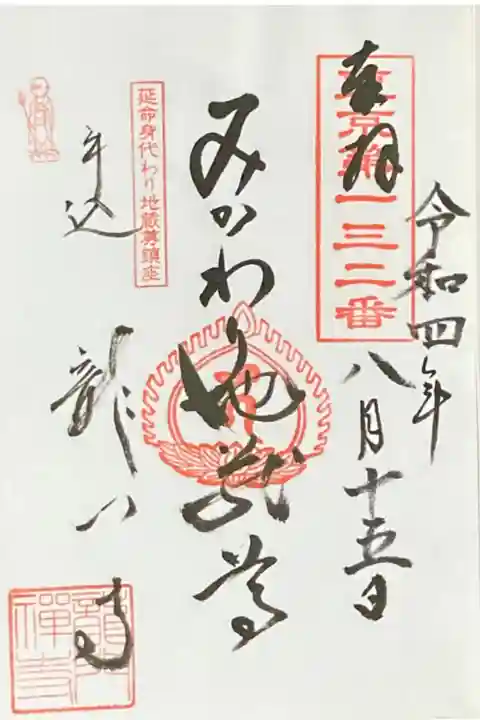 令和四年
八月十五日
奉拝
東京第一三二番
みかわり地蔵尊
延命身代わり地蔵尊鎮座
牛込 龍門寺
龍門禅寺